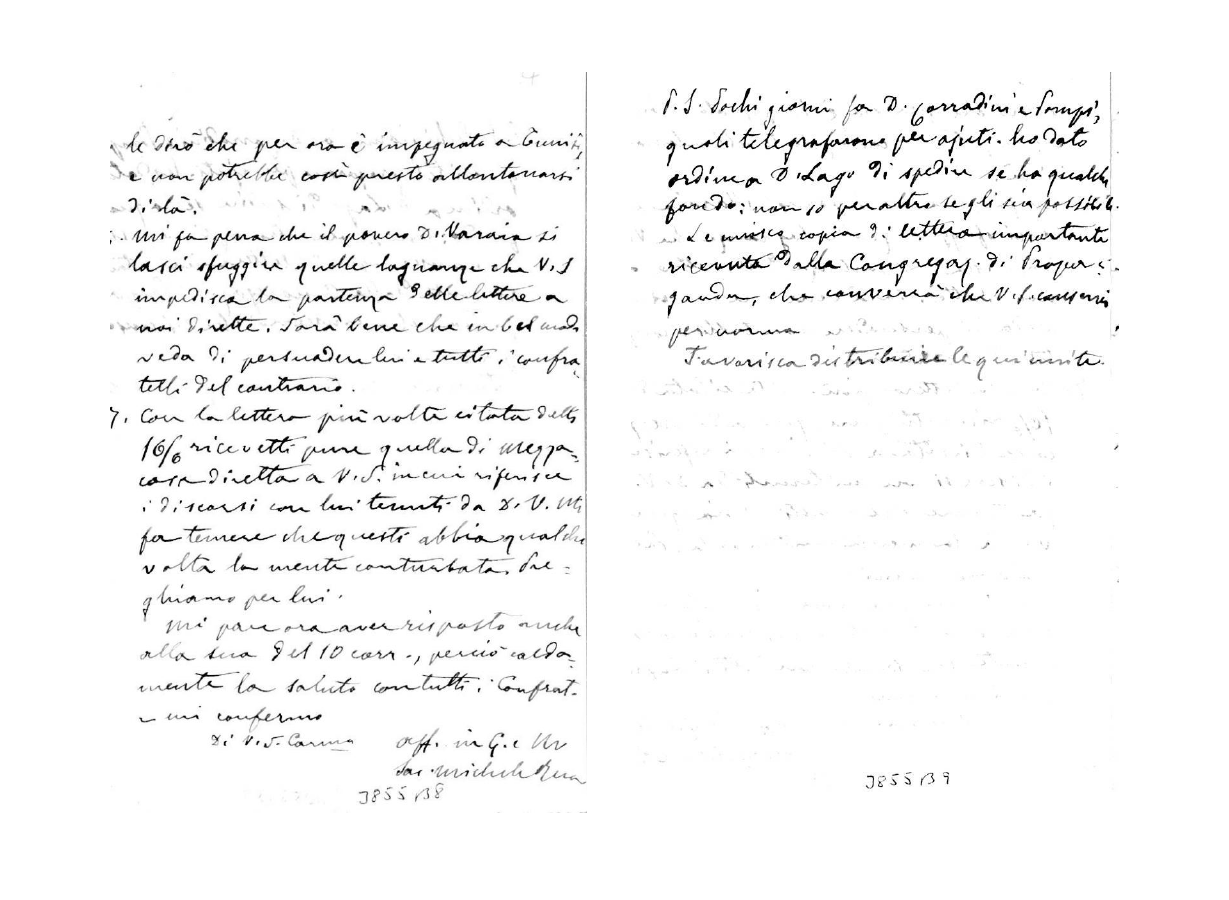 le dirò che per ora è impegnato a Tunisi,
e non potrebbe così presto allontanarsi
di là.
Mi fa pena che il povero D. Varaia si
lasci sfuggire quelle lagnanze che V. S
impedisca la partenza delle lettere a
noi dirette. Sarà bene che in bel modo
veda di persuadere lui e tutti i confra
telli del contrario.
7. Con la lettera più volte citata delli
16/6 ricevetti pure quella di Mezza=
casa diretta a V. S. in cui riferisce
i discorsi con lui tenuti da D. V. Mi
fa temere che questi abbia qualche
volta la mente conturbata. Pre=
ghiamo per lui.
Mi pare ora aver risposto anche
alla sua del 10 corr., perciò calda=
mente la saluto con tutti i Confrat.
e mi confermo
Di V. S. Carma
aff. in G. e M
Sac. Michele Rua
3855 B8
P. S. Pochi giorni fa D. Corradini e Pompi,
quali telegrafarono per ajuti. ho dato
ordine a D. Lago di spedire se ha qualche
fondo: non so peraltro se gli sia possibil.
Le unisco copia di lettera importante
ricevuta dalla Congregaz. di Propa=
ganda, che converrà che V. S. conservi
per norma
Favorisca distribuire le qui unite.
3855 B9